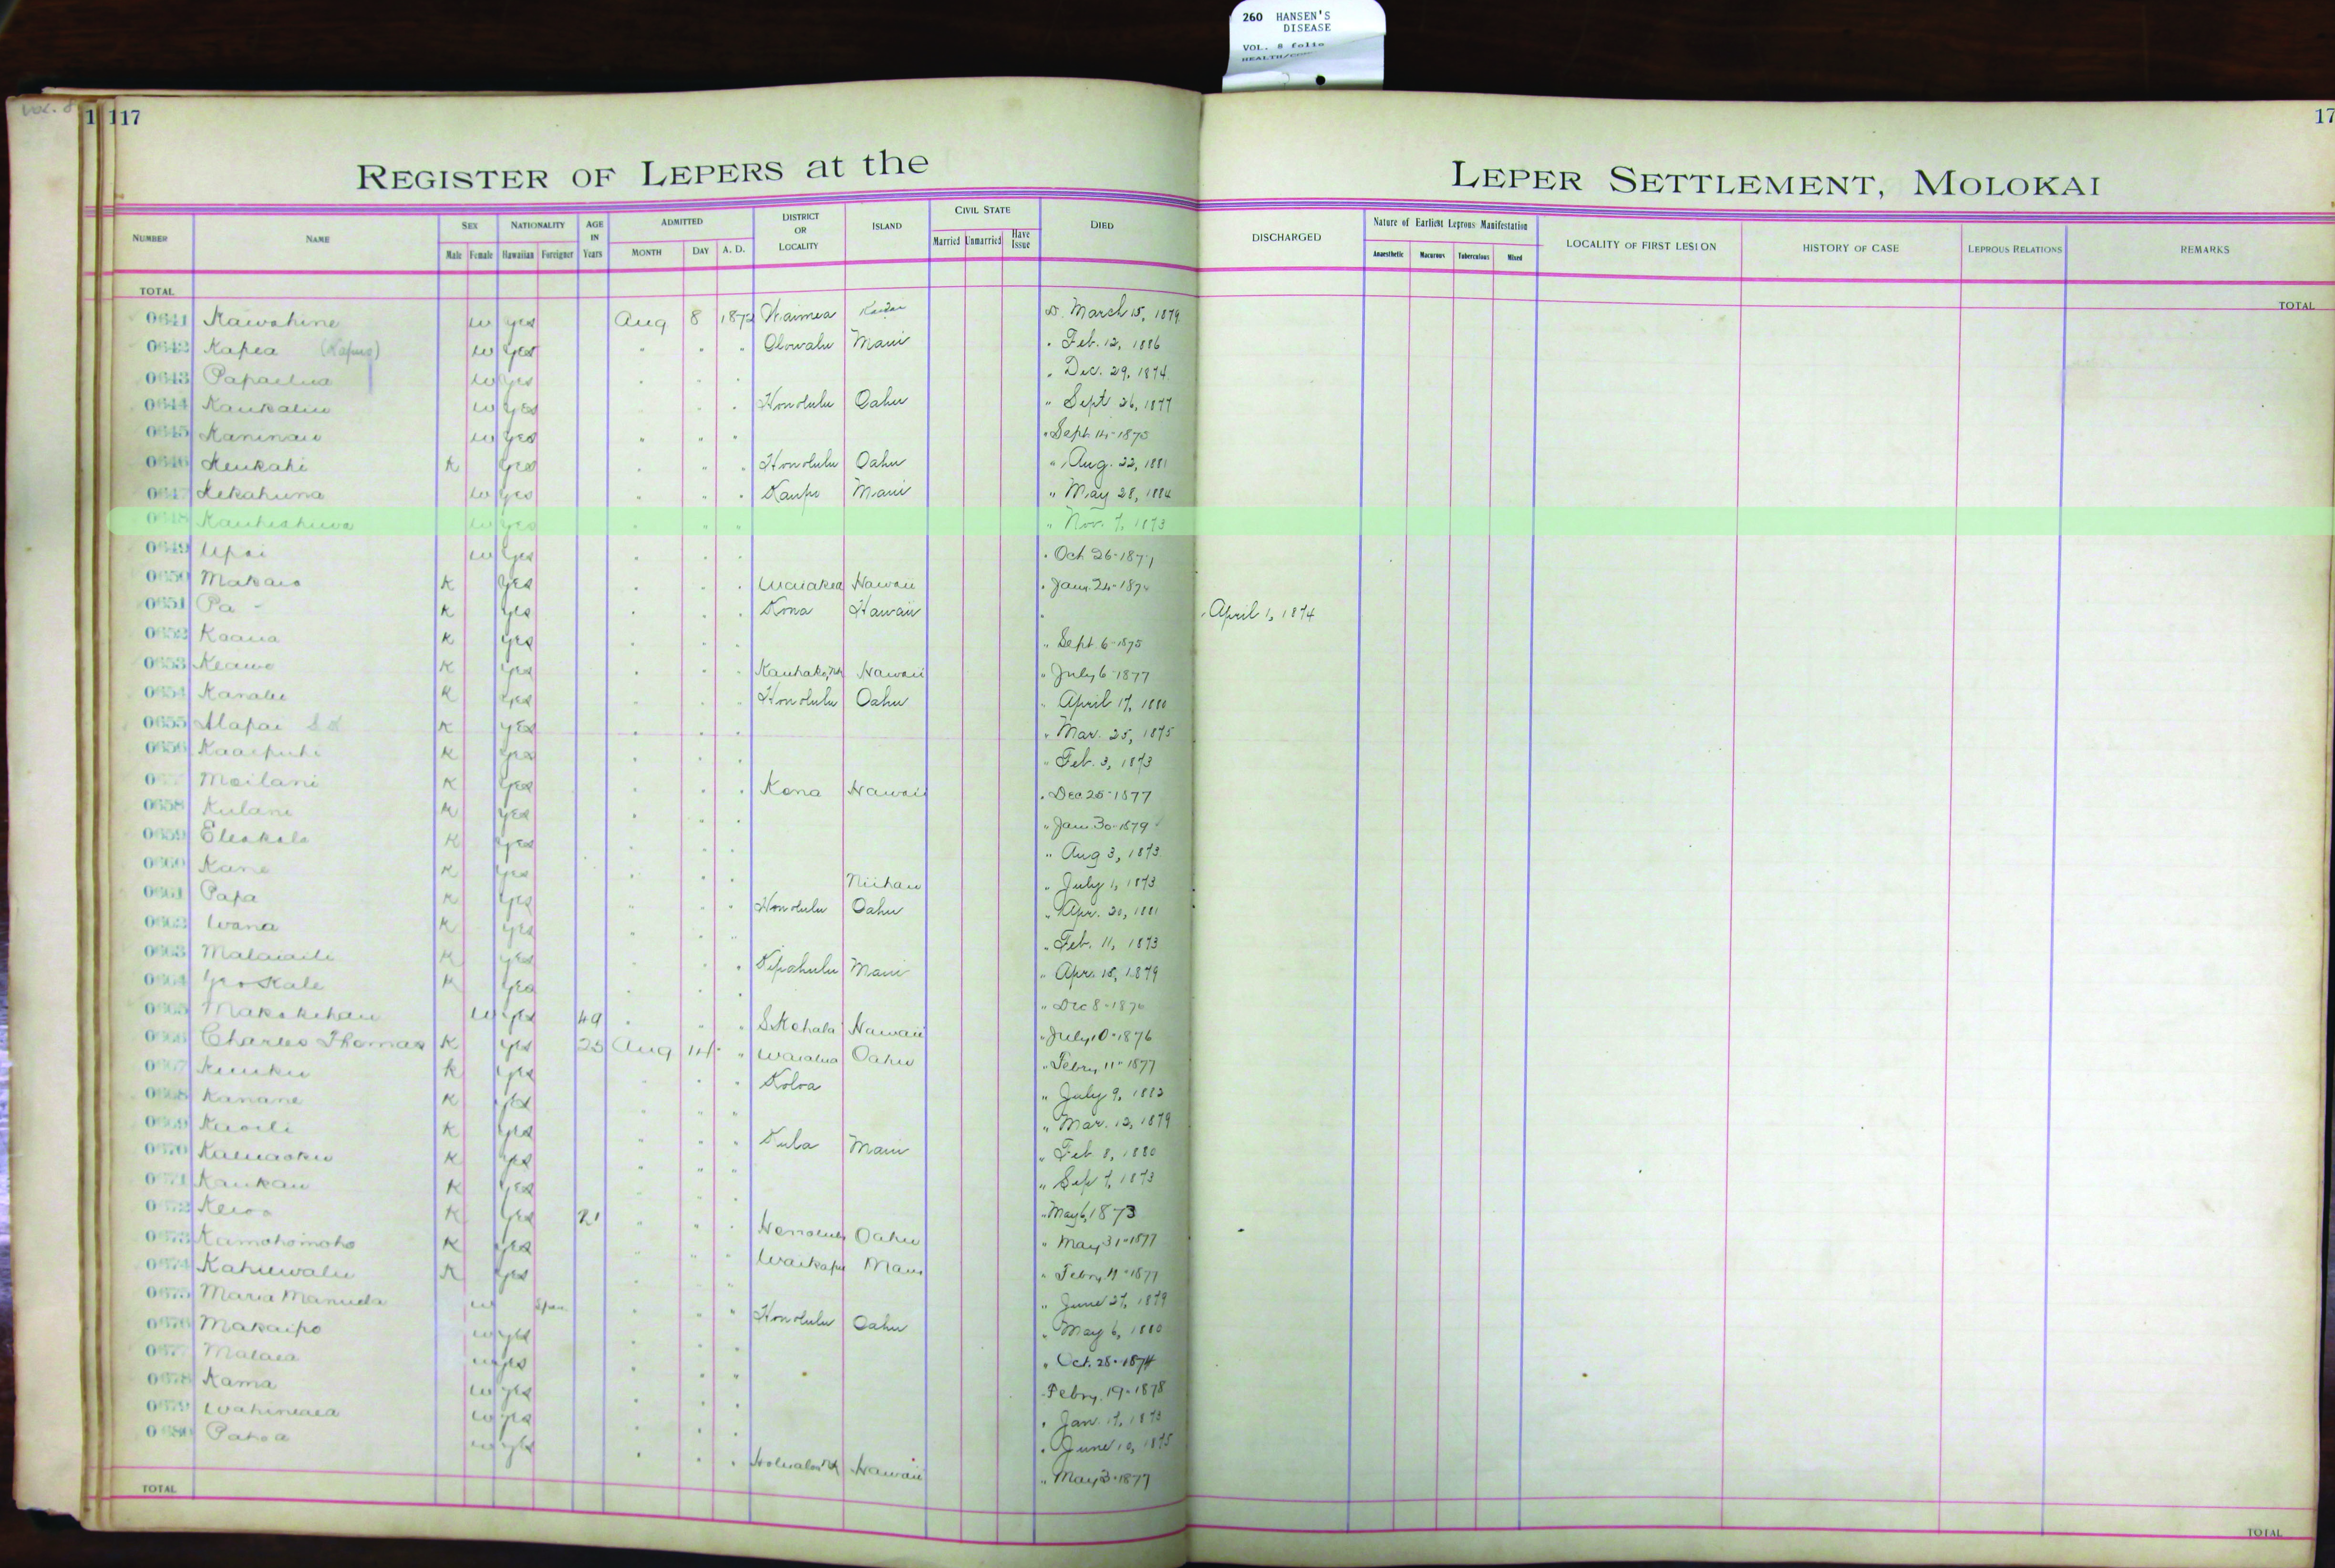 260 HANSEN'S
DISEASE
VOL. 8 folio
Vol. 8
1 117
17
REGISTER OF LEPERS at the
LEPER SETTLEMENT, MOLOKAI
NUMBER NAME SEX Male Female NATIONALITY Hawaiian Foreigner AGE IN Years ADMITTED MONTH DAY A. D. DISTRICT OR LOCALITY ISLAND CIVIL STATE Married Unmarried Have Issue DIED
DISCHARGED Nature of Earliest Leprous Manifestation Anaesthetic Macurous Tuberculous Mixed LOCALITY OF FIRST LESION HISTORY OF CASE LEPROUS RELATIONS REMARKS
TOTAL
TOTAL
0641 Kawahine w yes Aug 8 187 Waimea Kauai D. March 15, 1879
0642 Kapea w yes " " " Olowalu Maui " Feb. 12, 1886
0643 w yes " " " " Dec. 29, 1874
0644 w yes " " Honolulu Oahu " Sept 26, 1877
0645 Kaninau w yes " " " " Sept 14-1875
0646 Keukahi K yes " " " Honolulu Oahu " Aug. 22, 1881
0647 Kekahuna w yes " " " Kaupo Maui " May 28, 1884
0648 w yes " " " " Nov. 7, 1873
0649 Upai w yes " " " " Oct 26-1871
0650 Makaio K yes " " " Waiakea Hawaii " Jany 24-187
0651 Pa - K yes " " " Kona Hawaii " " April 1, 1874
0652 Koaua K yes " " " " Sept 6-1875
0653 Keawe K yes " " " Hawaii " July 6-1877
0654 Kanalu K yes " " " Honolulu Oahu " April 17, 1880
0655 Alapai K yes " " " " Mar. 25, 1875
0656 Kaaipuhi K yes " " " " Feb. 3, 1873
0 Moilani K yes " " " Kona Hawaii " Dec 25-1877
0658 Kulani K yes " " " " Jany 30-1879
0659 K yes " " " " Aug 3, 1873
0660 Kane K yes " " " Niihau " July 1, 1873
0661 Papa K yes " " " Honolulu Oahu " Apr. 20, 1881
0662 Wana K yes " " " " Feb. 11, 1873
0663 K yes " " " Kipahulu Maui " Apr. 15, 1879
0664 K yes " " " " Dec 8-1876
0665 Makakehau w yes 49 " " " S. Kohala Hawaii " July 10-1876
0666 Charles Thomas K yes 25 Aug 14 " Waialua Oahu " Febry 11-1877
0667 K yes " " " Koloa " July 9, 1882
0668 Kanane K yes " " " " Mar. 12, 1879
0669 Kuoili K yes " " " Kula Maui " Feb 8, 1880
0670 K yes " " " " Sep 7, 1873
0671 Kaukau K yes " " " " May 6, 1873
0672 K yes 21 " " " Honolulu Oahu " May 31-1877
0673 Kamohomoho K yes " " " Waikapu Maui " Febry 11-1877
0674 Kahuwalu K yes " " " " June 27, 1879
0675 Maria Manuela w Span. " " " Honolulu Oahu " May 6, 1880
0676 Makaipo w yes " " " " Oct. 28-1874
0677 Malaea w yes " " " " Febry 19-1878
0678 Kama w yes " " " " Jan. 17, 1873
0679 Wahineaea w yes " " " " June 10, 1875
0680 Pahoa w yes " " " Hawaii " May 3-1877
TOTAL
TOTAL